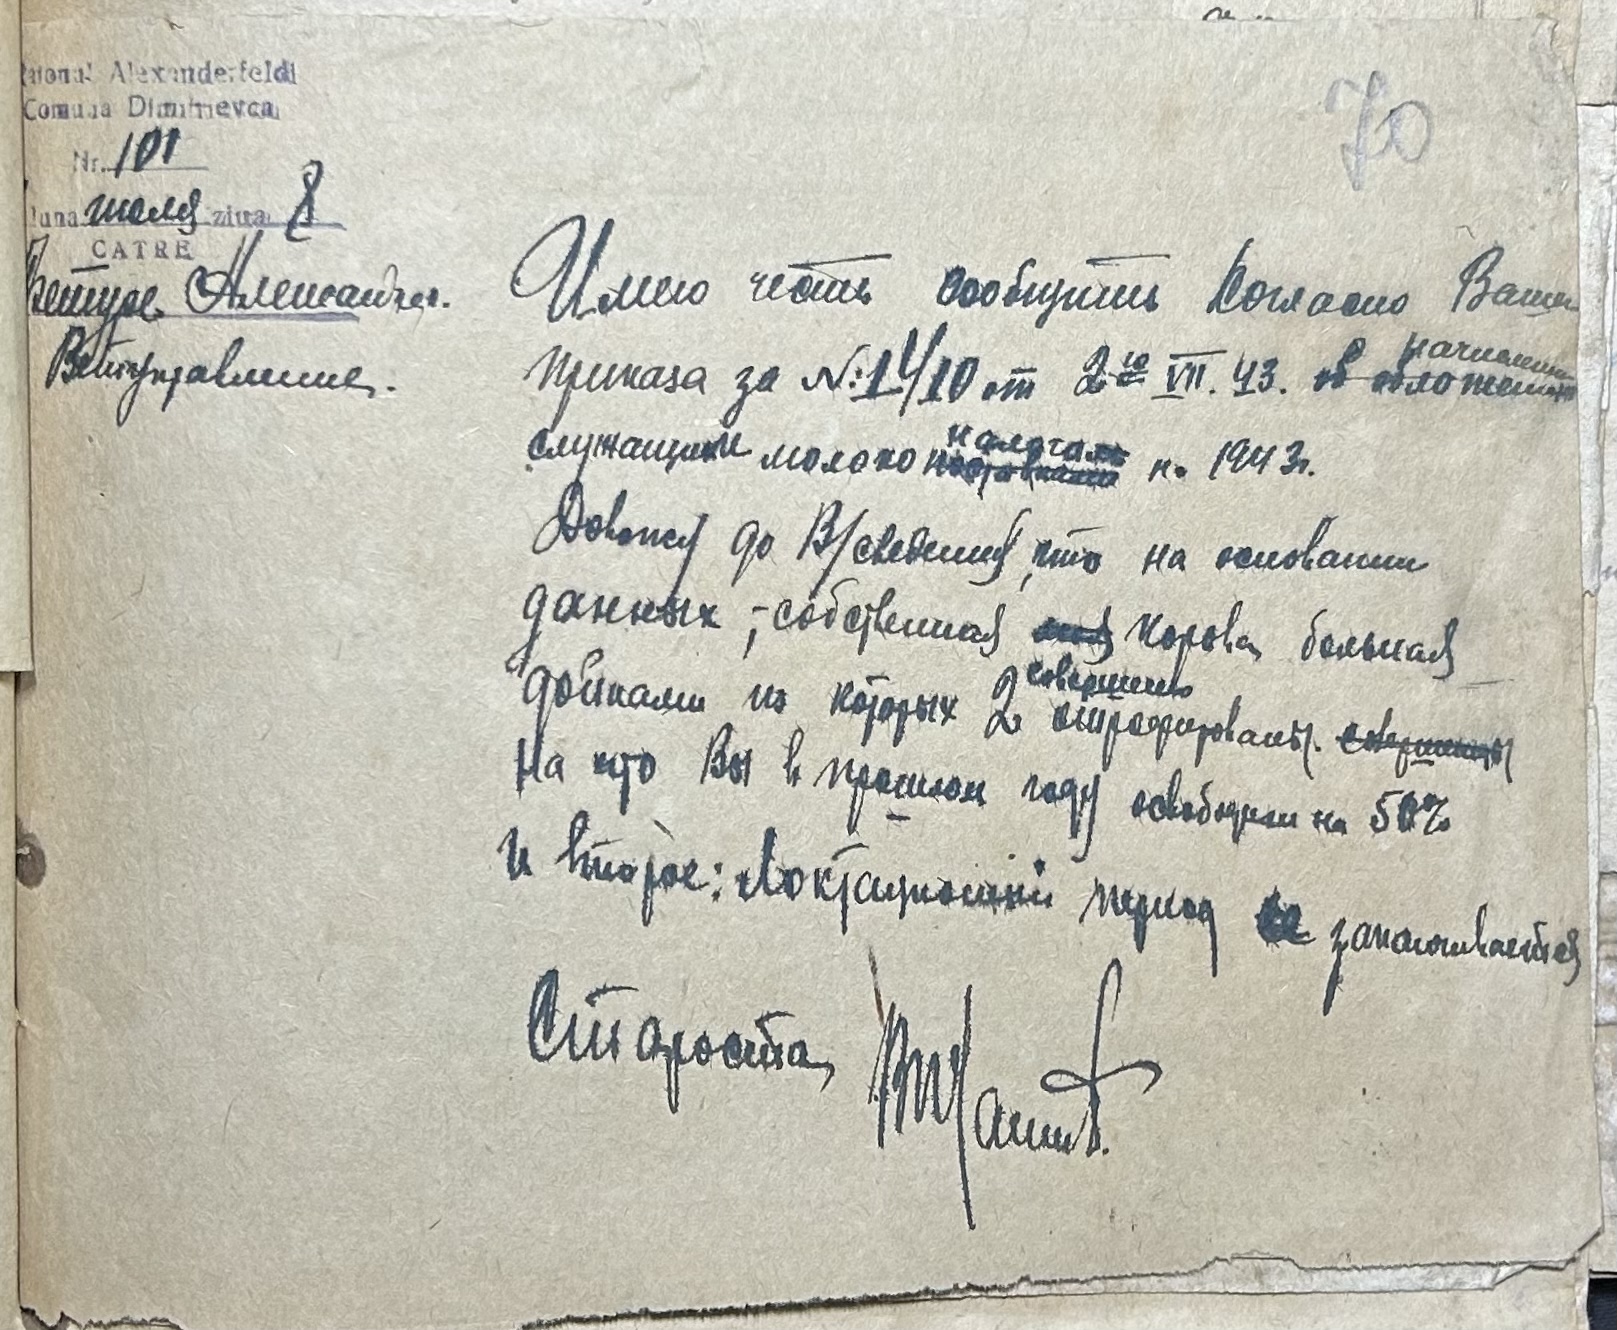 Raionul Alexanderfeldi
Comuna Dimitrievca
70
Nr. 101
luna июля ziua 8
CATRE
Александр.
Ветуправление.
Имею честь сообщить Согласно Вашего
приказа за №: 14/10 от 2го VII. 43. о начислении
служащим молоко налогам на 1943г.
Довожу до В/сведения, что на основании
данных, - собственная корова больная
дойками из которых 2 совершенно атрофированы.
На что Вы в прошлом году освободили на 50%
И второе: Локтационный период заканчивается
Староста